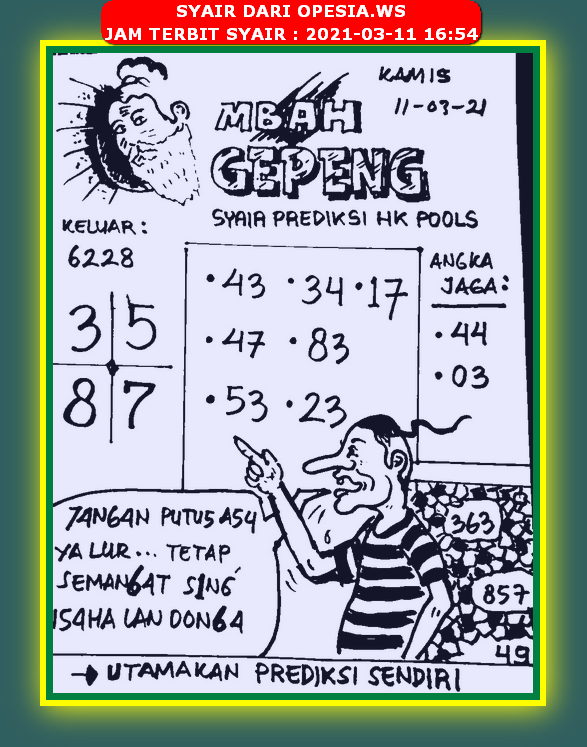 SYAIR DARI OPESIA.WS
JAM TERBIT SYAIR : 2021-03-11 16:54
KAMIS
11-03-21
MBAH
GEPENG
SYAIR PREDIKSI HK POOLS
KELUAR:
6228
3 5
8 7
• 43 • 34 • 17
• 47 • 83
• 53 • 23
ANGKA
JAGA:
• 44
• 03
7ANGAN PUTUS A54
YA LUR... TETAP
SEMAN6AT S1NG
154HA LAN DON6A
363
857
49
→ UTAMAKAN PREDIKSI SENDIRI